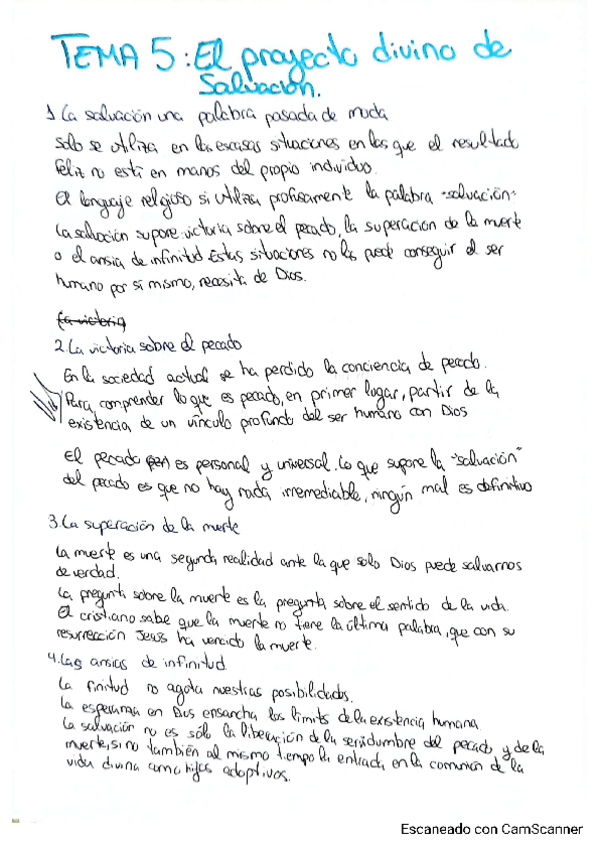 TEMA 5: El proyecto divino de
Salvación.
1 La salvación una palabra pasada de moda
Solo se utiliza en las escasas situaciones en las que el resultado
feliz no está en manos del propio individuo.
El lenguaje religioso si utiliza profusamente la palabra "salvación".
La salvación supone victoria sobre el pecado, la superación de la muerte
o el ansia de infinitud. Estas situaciones no las puede conseguir el ser
humano por sí mismo, necesita de Dios.
La victoria
2. La victoria sobre el pecado
En la sociedad actual se ha perdido la conciencia de pecado.
Para comprender lo que es pecado, en primer lugar, partir de la
existencia de un vínculo profundo del ser humano con Dios
El pecado es personal y universal. Lo que supone la "salvación"
del pecado es que no hay nada irremediable, ningún mal es definitivo
3. La superación de la muerte
La muerte es una segunda realidad ante la que solo Dios puede salvarnos
de verdad.
La pregunta sobre la muerte es la pregunta sobre el sentido de la vida.
El cristiano sabe que la muerte no tiene la última palabra, que con su
resurrección Jesús ha vencido la muerte.
4. Las ansias de infinitud
La finitud no agota nuestras posibilidades.
La esperanza en Dios ensancha los límits de la existencia humana.
La salvación no es solo la liberación de la servidumbre del pecado y de la
muerte, si no también al mismo tiempo la entrada en la comunión de la
vida divina como hijos adoptivos.
Escaneado con CamScanner